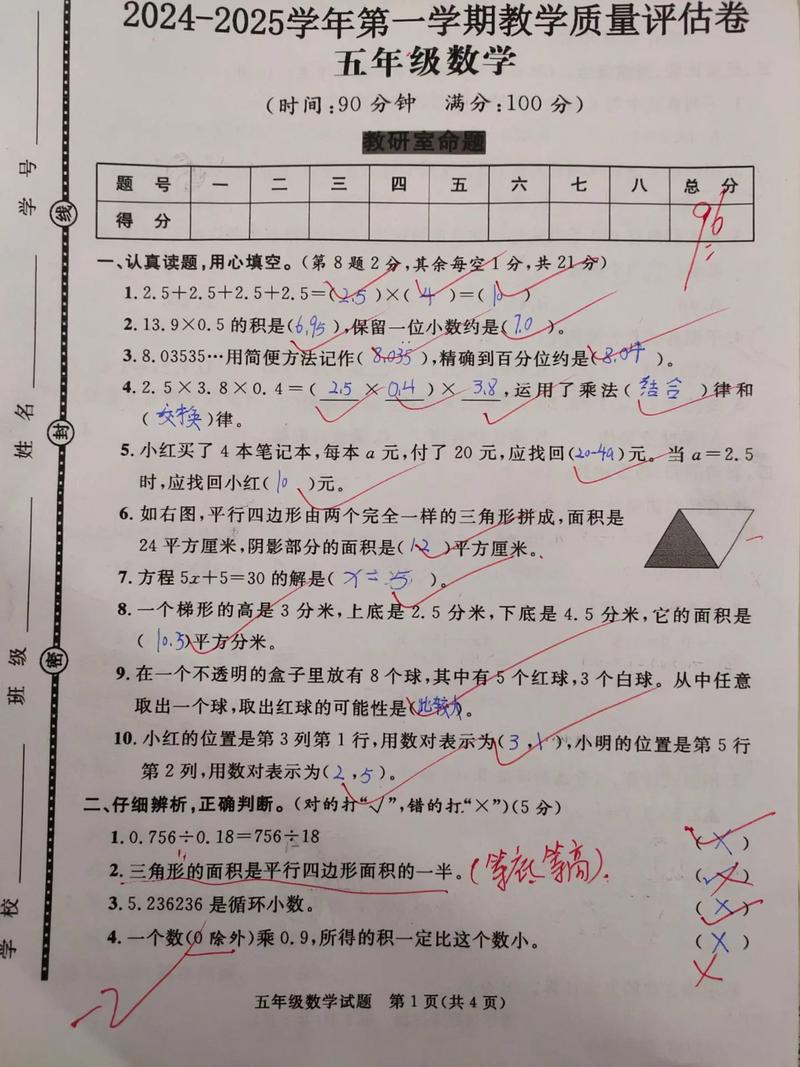 2024-2025学年第一学期教学质量评估卷
五年级数学
(时间:90分钟 满分:100分)
教研室命题
题号 一 二 三 四 五 六 七 八 总分
得分
96
一、认真读题,用心填空。(第8题2分,其余每空1分,共21分)
1.2.5+2.5+2.5+2.5=(2.5)×(4)=(10)
2.13.9×0.5的积是(6.95),保留一位小数约是(7.0)。
3.8.03535…用简便方法记作(8.035),精确到百分位约是(8.04)。
4.2.5×3.8×0.4=(2.5×0.4)×3.8,运用了乘法(结合)律和
(交换)律。
5.小红买了4本笔记本,每本a元,付了20元,应找回(20-4a)元。当a=2.5
时,应找回小红(10)元。
6.如右图,平行四边形由两个完全一样的三角形拼成,面积是
24平方厘米,阴影部分的面积是(12)平方厘米。
7.方程5x+5=30的解是(x=5)。
8.一个梯形的高是3分米,上底是2.5分米,下底是4.5分米,它的面积是
(10.5)平方分米。
9.在一个不透明的盒子里放有8个球,其中有5个红球,3个白球。从中任意
取出一个球,取出红球的可能性是(比较大)。
10.小红的位置是第3列第1行,用数对表示为(3,1),小明的位置是第5行
第2列,用数对表示为(2,5)。
二、仔细辨析,正确判断。(对的打“√”,错的打“×”)(5分)
1.0.756÷0.18=756÷18 (×)
2.三角形的面积是平行四边形面积的一半。(等底等高). (√)
3.5.236236是循环小数。 (×)
4.一个数(0除外)乘0.9,所得的积一定比这个数小。 (×)
-2
五年级数学试题 第1页(共4页)
学校
班级
姓名
学号
密
封
线